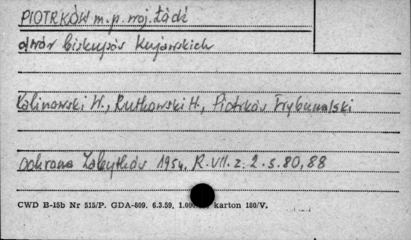 PIOTRKÓW m.p. woj. Łódź
dwór biskupów kujawskich
Kalinowski W., Rutkowski H., Piotrków Trybunalski
Ochrona Zabytków 1954, R. VII. z. 2. s. 80, 88
CWD B-15b Nr 515/P. GDA-809. 6.3.59, 1.000 karton 180/V.